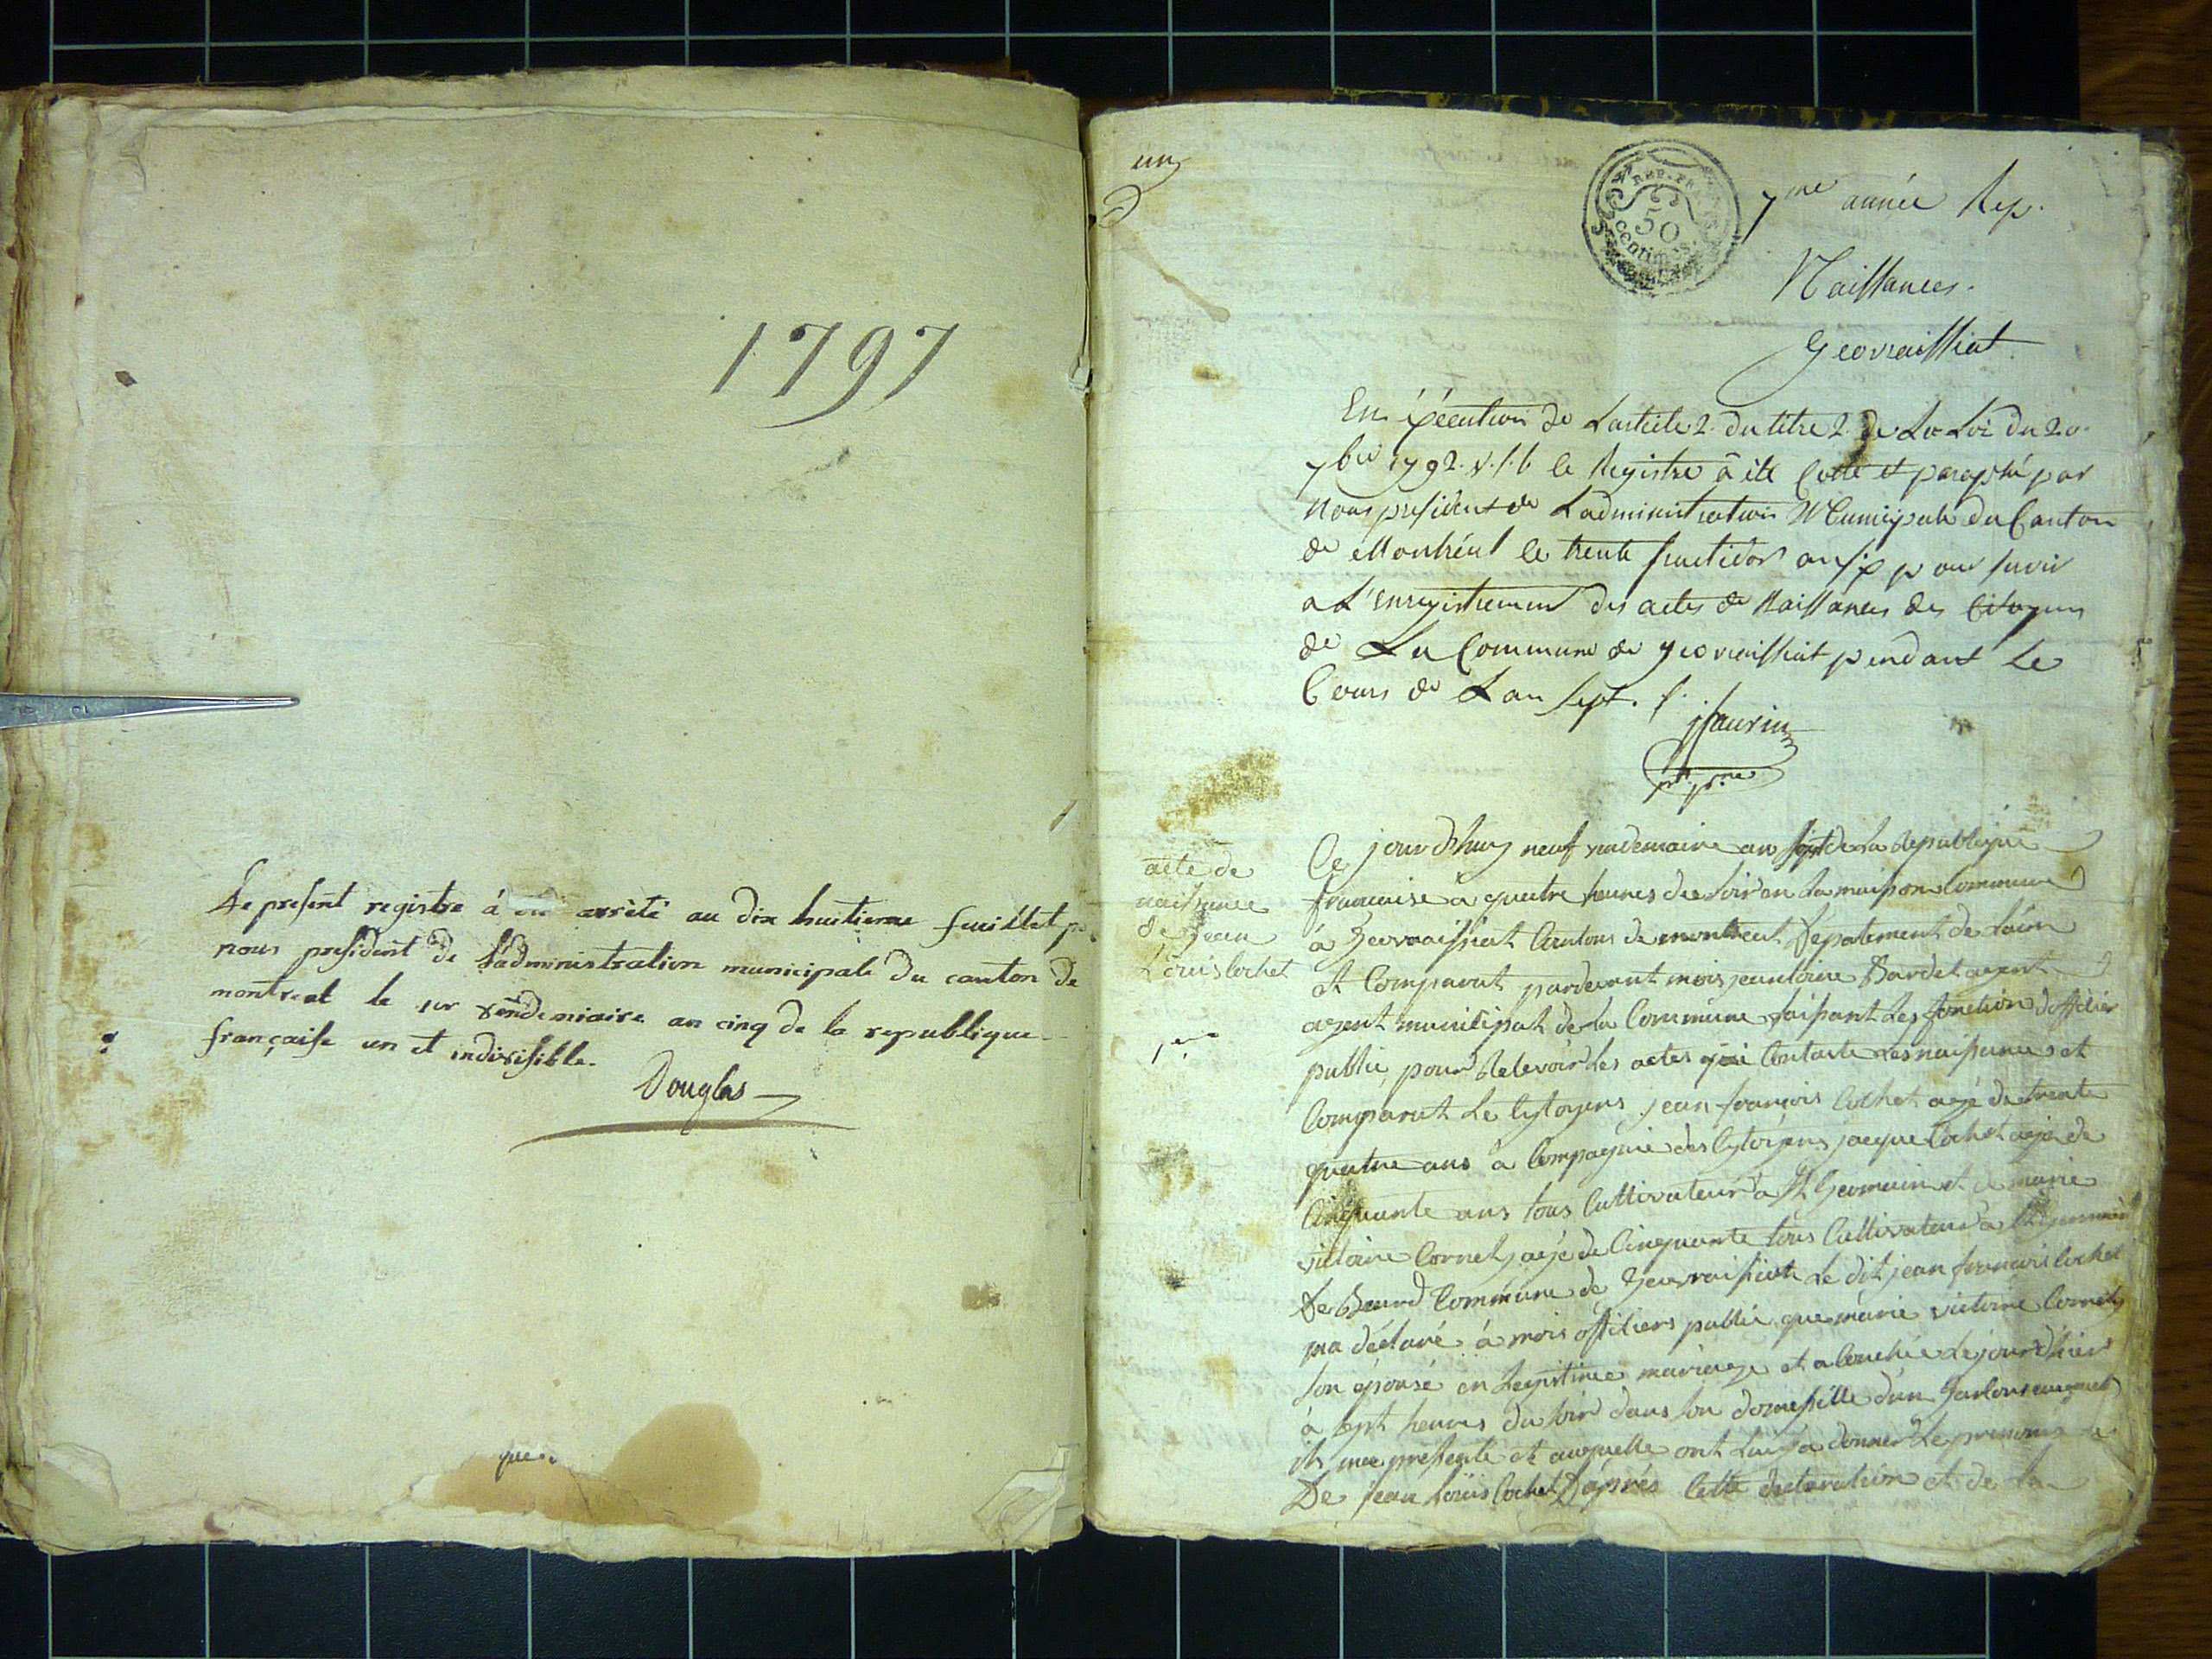 1797
Le present registre á été arrèté au dix huitieme feuillet p
nous president de L'administration municipale du canton de
montreal le 1er vendemiaire an cinq de la republique
française un et indivisible.
Douglas
que
un
REP. FRA
50
centimes.
7me année Rep.
Naissances.
Geovraissiat
En éxécution de Larticle 2. du titre 2. de La Loi du 20.
7bre 1792. v. s. le Registre à été Cotté et paraphé par
Nous president de Ladministration Municipale du Canton
de Montréal le trente fructidor an six pour servir
a L'enregistrement des actes de Naissances des Citoyens
de La Commune de geovraissiat pendant Le
Cours de Lan sept.
acte de
naissance
de jean
Louis Cochet
1ere
Ce jourdhuy neuf vendemaire an sept de La Republique
francaise a quatre heures du soir en La maison Commune
à Geovraissiat Cantons de montreal Depatement de Lain
et Comparut pardevant mois jean Bardet agent
agent municipal de La Commune faisant Les fonction dofficier
public pour Relevoir Les actes qui Contaste Les naissances et
Comparut Le Cytoyens jean francois Cochet agé de trente
quatre ans a Compagnie des Cytoyens jacque Cochet agé de
Cinquante ans tous Cultivateur a St Germain et de marie
victoire Cornet agé de Cinquante tous Cultivateur a St Germain
De Beard Commune de Geovraissiat Le dit jean francois Cochet
ma déclaré à mois officiers public que marie victoire Cornet
son epousé en Legitime mariage et acouchée Le jour dhier
à sept heures du soir dans son domesille dun Garson auquel
ils mee presente et auquelle ont Luy a donner Le prenoms
De jean Louis Cochet Daprés Cette declaration et de La